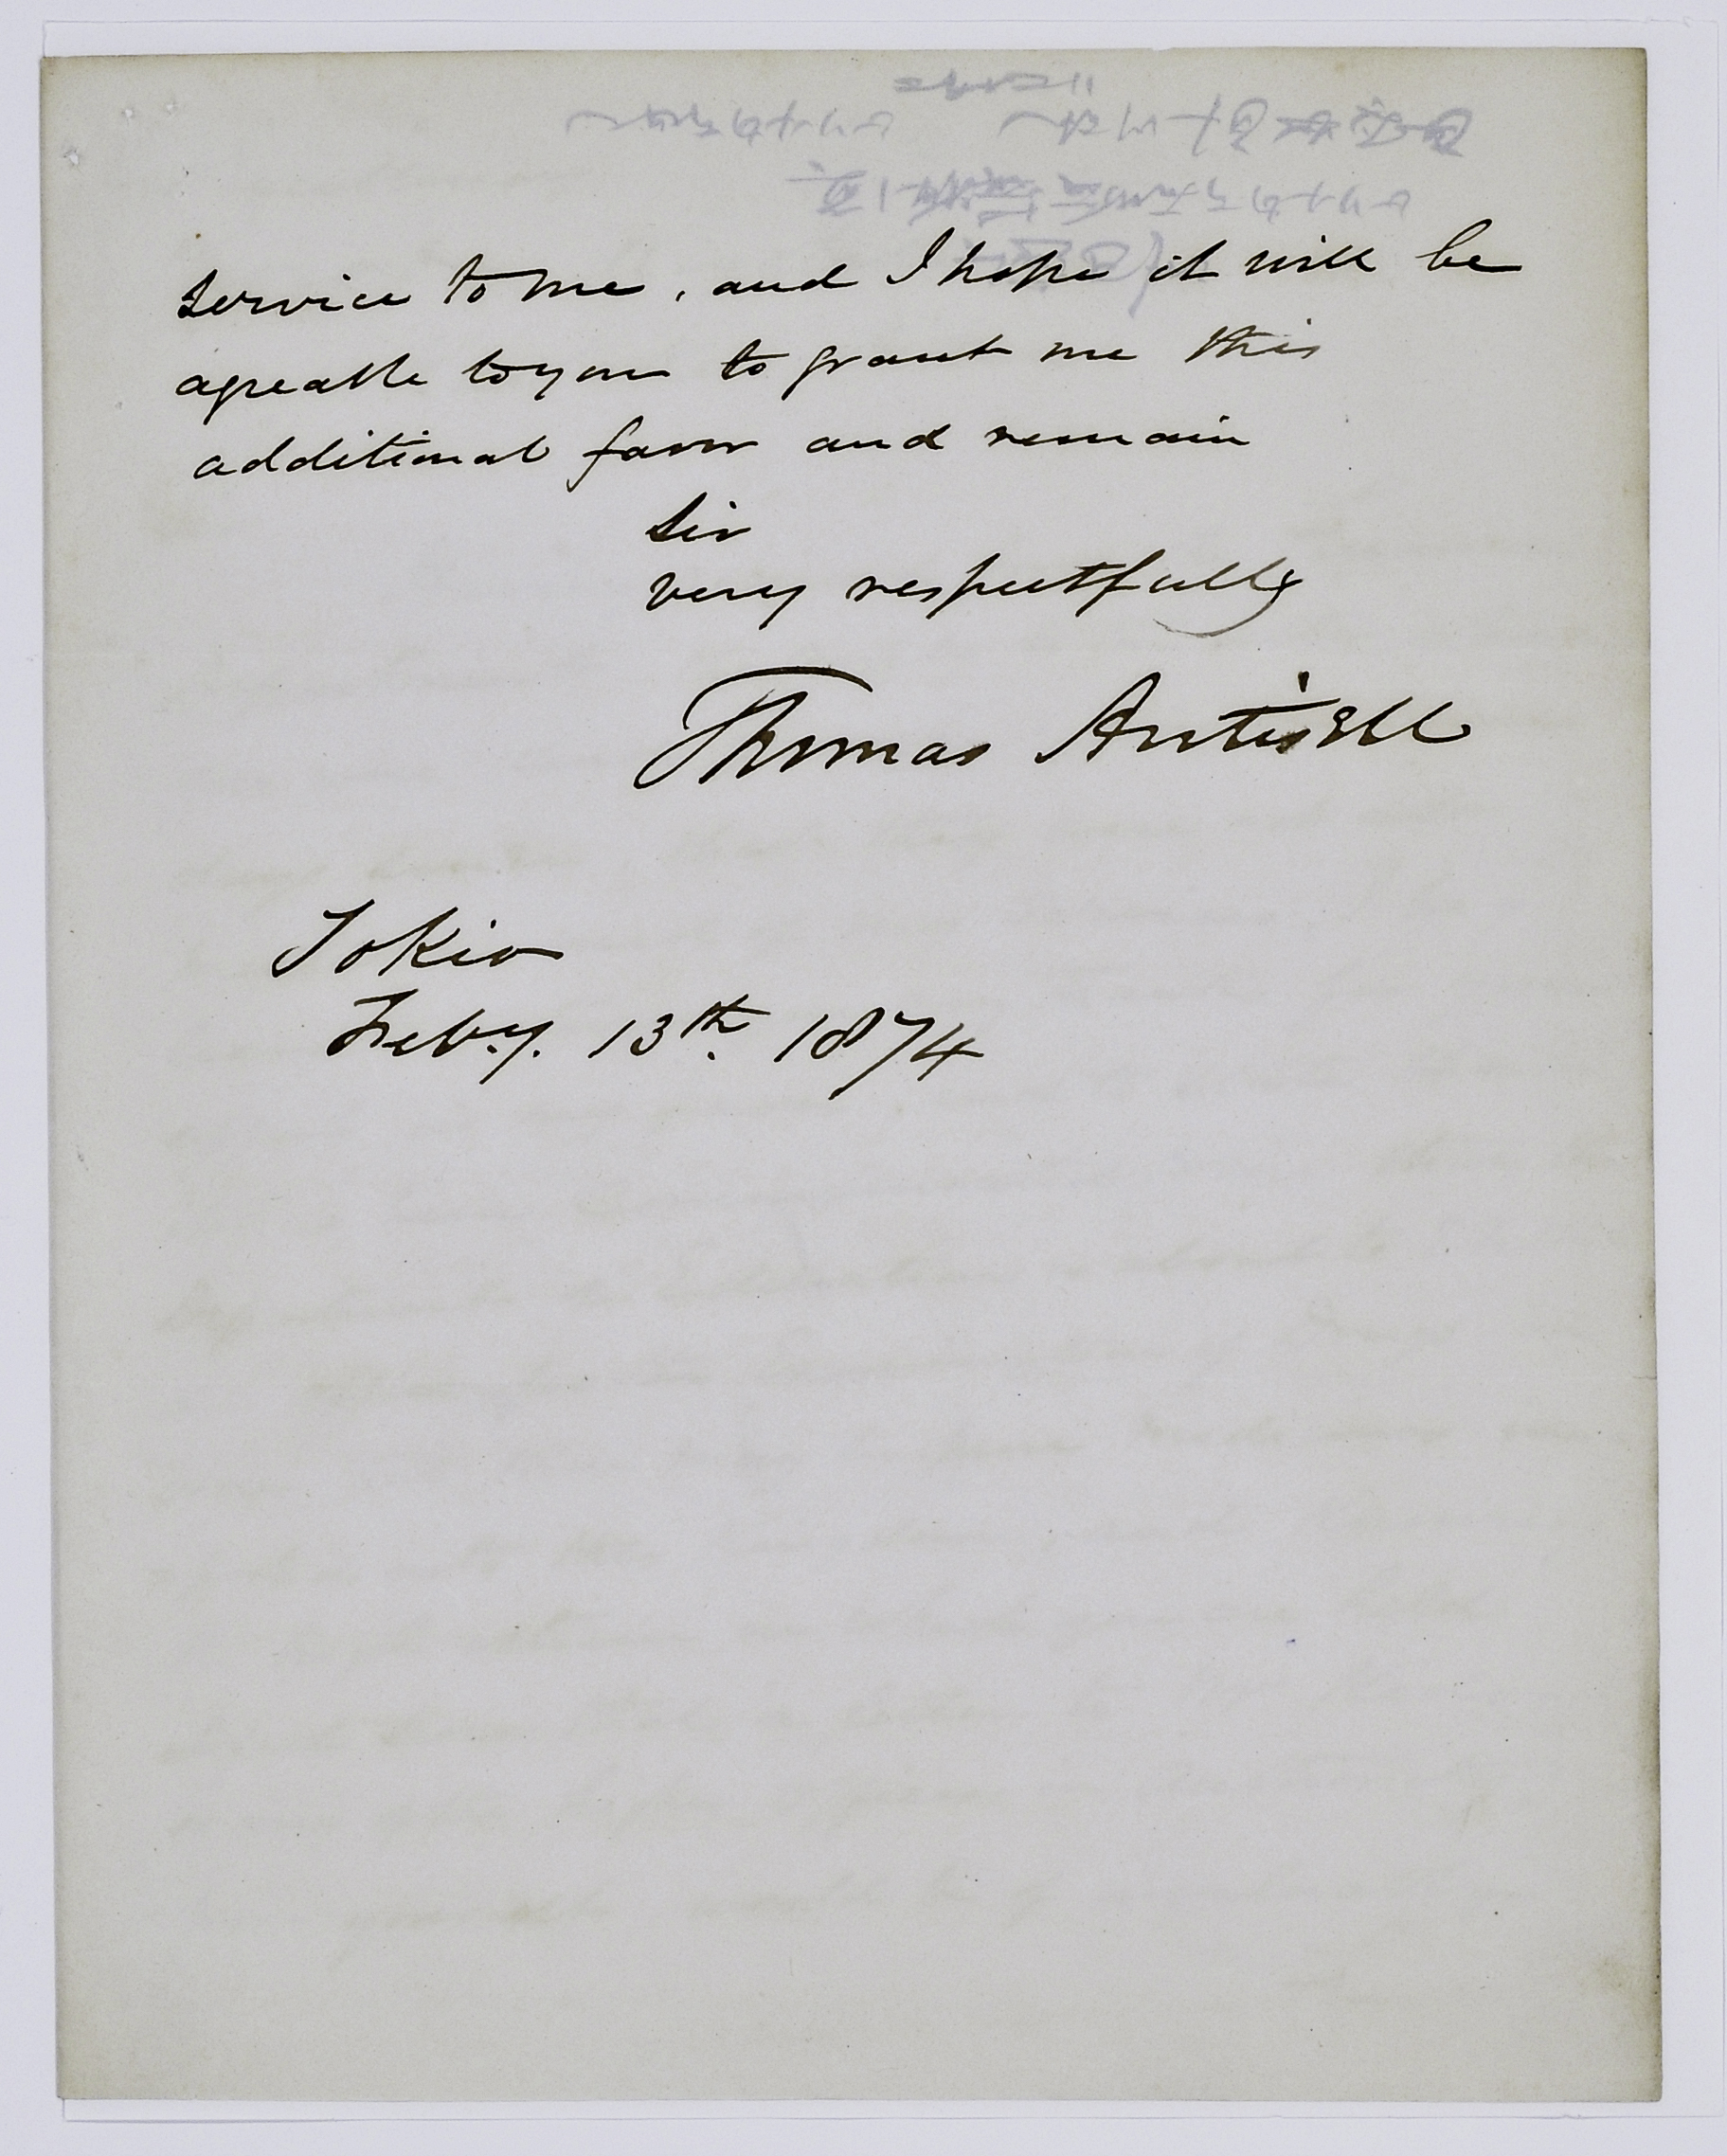 service to me, and I hope it will be
agreable to you to grant me this
additional favor and remain
Sir
very respectfully
Thomas Antisell
Tokio
Feby. 13th. 1874